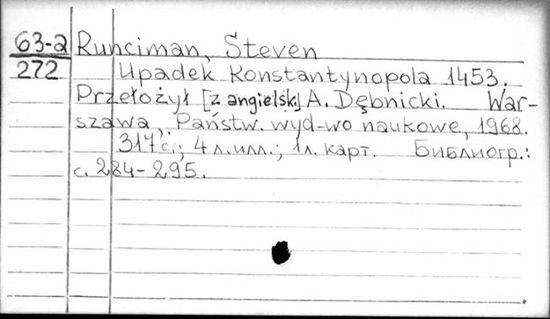 63-2 Runciman, Steven
272 Upadek Konstantynopola 1453.
Przełożył [z angielsk.] A. Dębnicki. War-
szawa, Państw. wyd-wo naukowe, 1968.
317 с.; 4 л. илл.; 1 л. карт. Библиогр.:
с. 284-295.